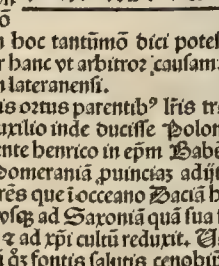 hoc tantūmō dici potes
hanc vt arbitror causam
lateranensi.
is ortus parentibꝰ lr̄is tr
uxilio inde ducisse Polon
nte henrico in ep̄m Babē
omeraniā ꝓuinciaʒ adit
rēs que ī occeano Daciā h
vsqʒ ad Saxoniā quā sua
⁊ ad xp̄i cultū reduxit. U
qʒ fontis salutis cenobiū